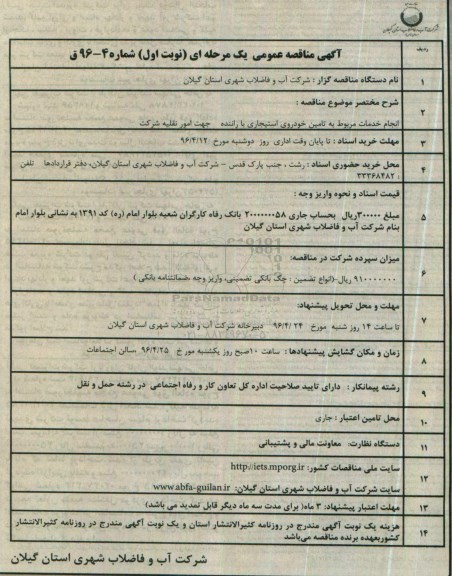 شرکت آب و فاضلاب شهری استان گیلان
ردیف
آگهی مناقصه عمومی یک مرحله ای (نوبت اول) شماره ۴-۹۶ ق
۱
نام دستگاه مناقصه گزار : شرکت آب و فاضلاب شهری استان گیلان
۲
شرح مختصر موضوع مناقصه :
انجام خدمات مربوط به تامین خودروی استیجاری با راننده جهت امور نقلیه شرکت
۳
مهلت خرید اسناد : تا پایان وقت اداری روز دوشنبه مورخ ۹۶/۴/۱۲
۴
محل خرید حضوری اسناد : رشت ، جنب پارک قدس – شرکت آب و فاضلاب شهری استان گیلان، دفتر قراردادها تلفن
: ۳۳۳۶۸۴۸۲
۵
قیمت اسناد و نحوه واریز وجه :
مبلغ ۳۰۰۰۰۰ریال بحساب جاری ۲۰۰۰۰۰۰۰۵۸ بانک رفاه کارگران شعبه بلوار امام (ره) کد ۱۳۹۱ به نشانی بلوار امام
بنام شرکت آب و فاضلاب شهری استان گیلان
۶
میزان سپرده شرکت در مناقصه:
۹۱۰۰۰۰۰۰۰ ریال-(انواع تضمین : چک بانکی تضمینی، واریز وجه ،ضمانتنامه بانکی )
ParaNamadData
۷
مهلت و محل تحویل پیشنهاد:
تا ساعت ۱۴ روز شنبه مورخ ۹۶/۴/۲۴ دبیرخانه شرکت آب و فاضلاب شهری استان گیلان
۸
زمان و مکان گشایش پیشنهادها : ساعت ۱۰صبح روز یکشنبه مورخ ۹۶/۴/۲۵ سالن اجتماعات
۹
رشته پیمانکار : دارای تایید صلاحیت اداره کل تعاون کار و رفاه اجتماعی در رشته حمل و نقل
۱۰
محل تامین اعتبار : جاری
۱۱
دستگاه نظارت: معاونت مالی و پشتیبانی
۱۲
سایت ملی مناقصات کشور: http://iets.mporg.ir
سایت شرکت آب و فاضلاب شهری استان گیلان: www.abfa-guilan.ir
۱۳
مهلت اعتبار پیشنهاد: ۳ ماه( برای مدت سه ماه دیگر قابل تمدید می باشد)
۱۴
هزینه یک نوبت آگهی مندرج در روزنامه کثیرالانتشار استان و یک نوبت آگهی مندرج در روزنامه کثیرالانتشار
کشوربعهده برنده مناقصه می‌باشد
شرکت آب و فاضلاب شهری استان گیلان